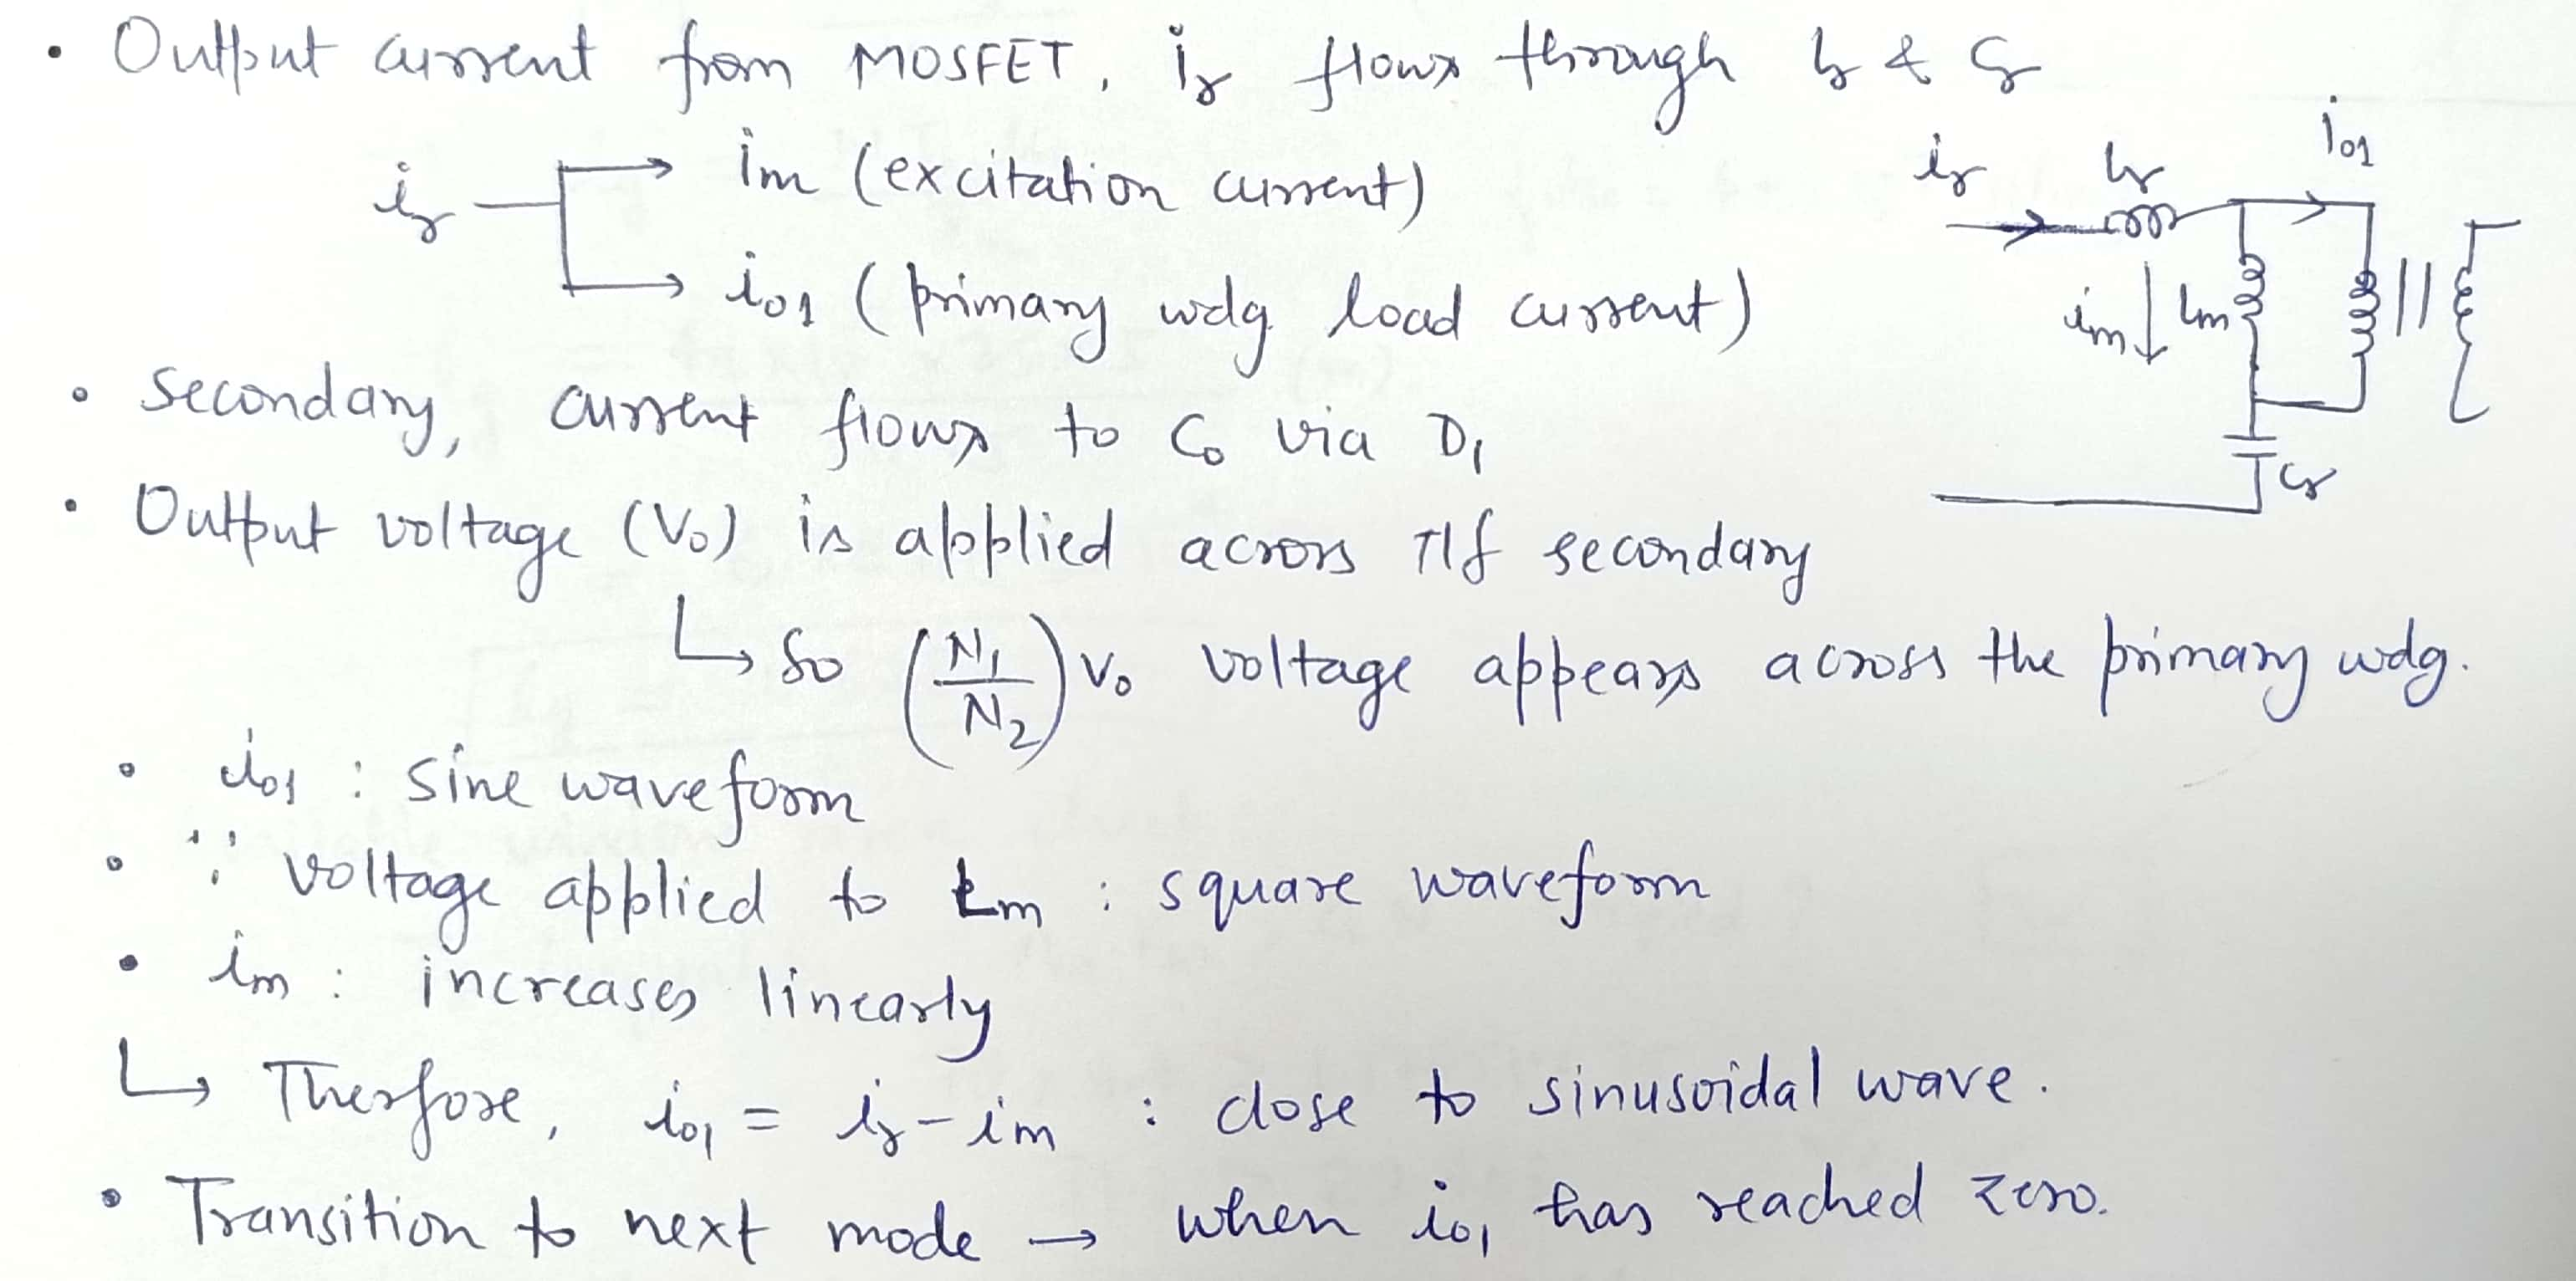 • Output current from MOSFET, ir flows through Lr & Cr
ir → im (excitation current)
→ io1 (primary wdg load current)
ir Lr io1
im ↓ Lm
Cr
• Secondary, current flows to Co via D1
• Output voltage (Vo) is applied across T/f secondary
↳ So (N1/N2) Vo voltage appears across the primary wdg.
• io1 : Sine waveform
• ∵ voltage applied to Lm : square waveform
• im : increases linearly
↳ Therfore, io1 = ir - im : close to sinusoidal wave.
• Transition to next mode → when io1 has reached zero.